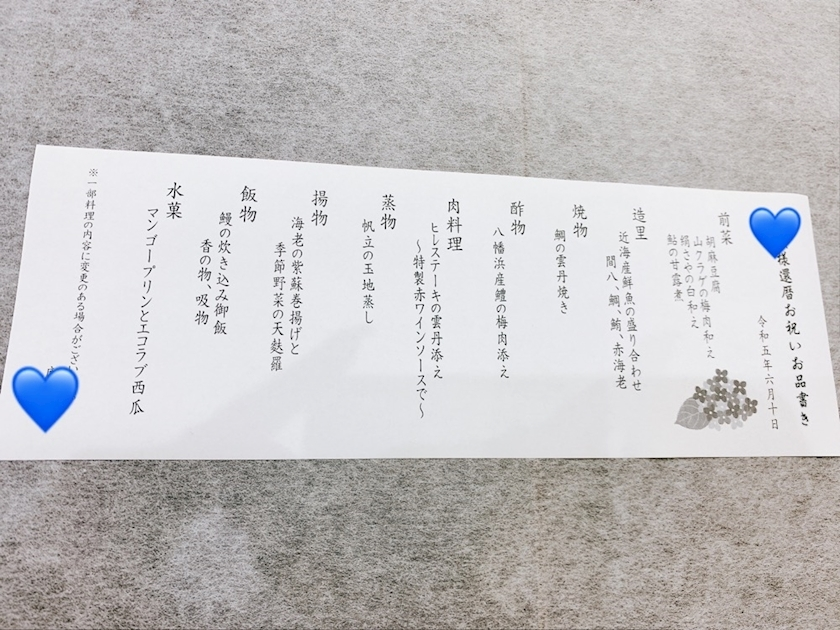 様還暦お祝いお品書き
令和五年六月十日
前菜
胡麻豆腐
山クラゲの梅肉和え
絹さやの白和え
鮎の甘露煮
造里
近海産鮮魚の盛り合わせ
間八、鯛、鮪、赤海老
焼物
鯛の雲丹焼き
酢物
八幡浜産鱧の梅肉添え
肉料理
ヒレステーキの雲丹添え
〜特製赤ワインソースで〜
蒸物
帆立の玉地蒸し
揚物
海老の紫蘇巻揚げと
季節野菜の天麩羅
飯物
鰻の炊き込み御飯
香の物、吸物
水菓
マンゴープリンとエコラブ西瓜
※一部料理の内容に変更のある場合がござい